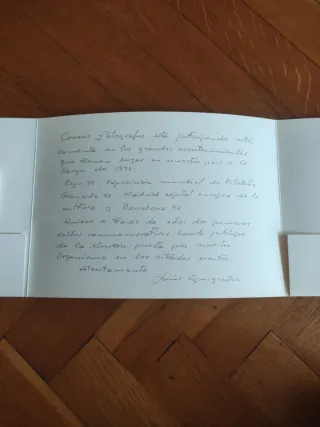 Correos y Telégrafos está participando acti
vamente en los grandes acontecimientos
que tienen lugar en nuestro país a lo
largo de 1992:
Expo 92 Exposición mundial de Filatelia
Granada 92, Madrid capital europea de la
cultura y Barcelona 92
Quiero a través de estos dos primeros
sellos conmemorativos, hacerle partícipe
de la ilusión puesta por nuestro
Organismo en los citados eventos.
Atentamente